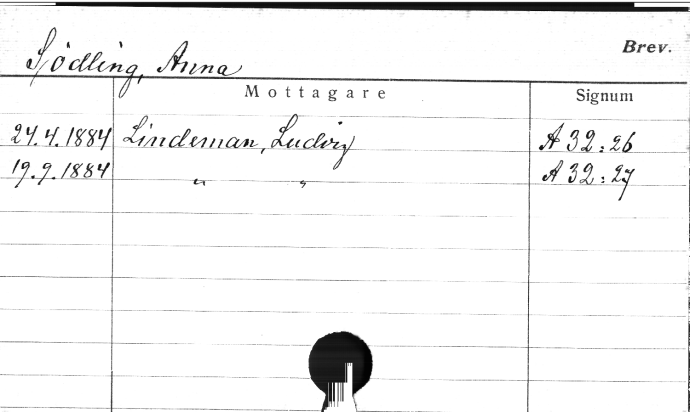 Sjödling, Anna
Brev.
Mottagare Signum
24.4.1884 Lindeman, Ludvig A 32:26
19.9.1884 " " A 32:27